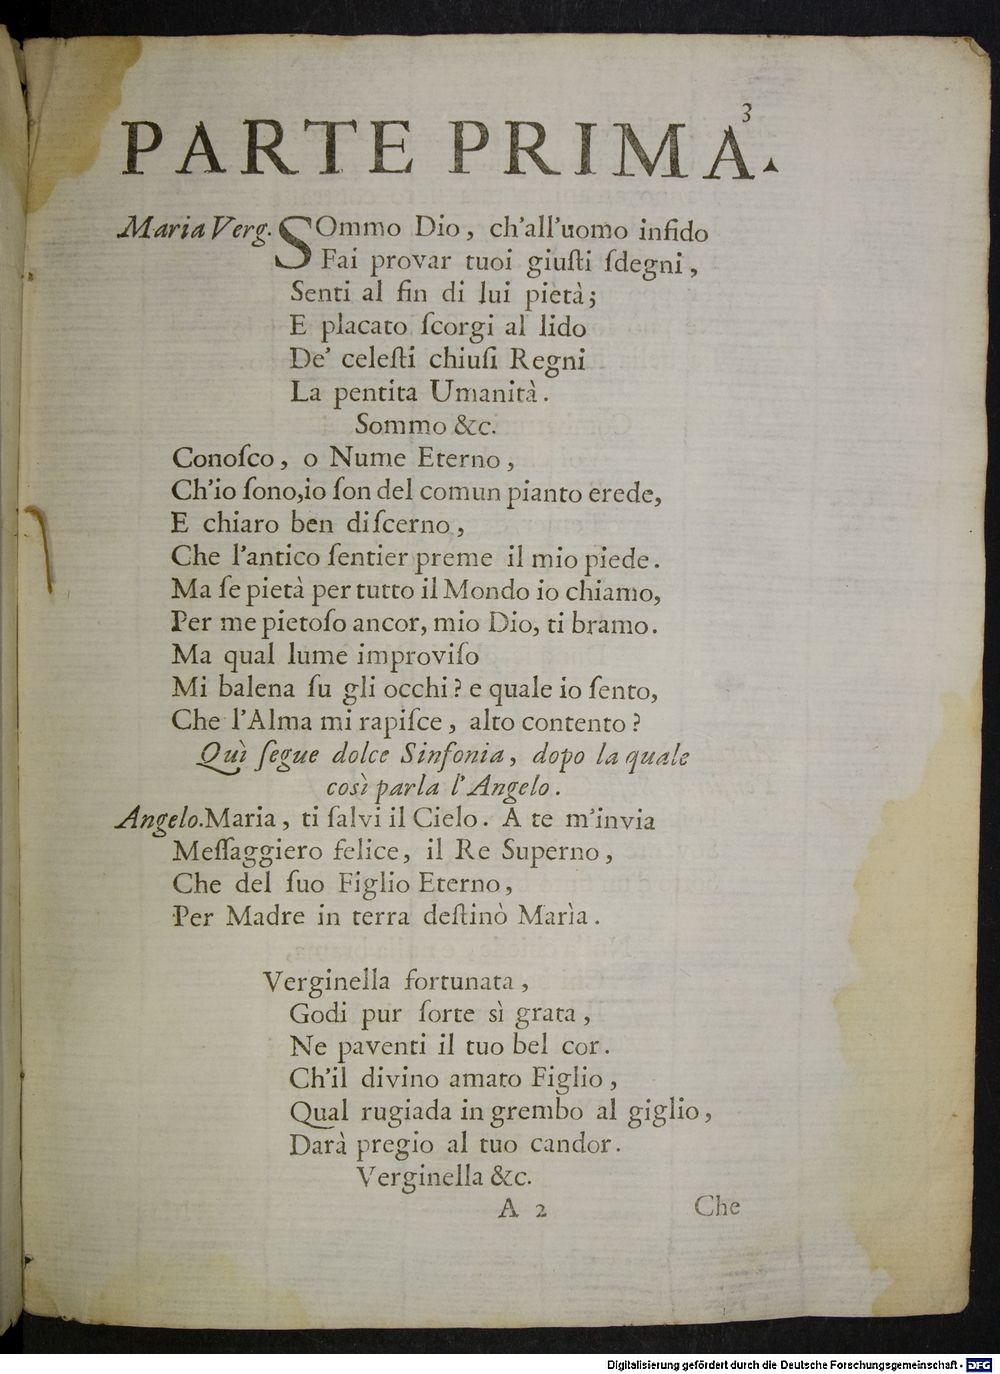 3
PARTE PRIMA.
Maria Verg. SOmmo Dio, ch'all'uomo infido
Fai provar tuoi giuſti ſdegni,
Senti al fin di lui pietà;
E placato ſcorgi al lido
De' celeſti chiuſi Regni
La pentita Umanità.
Sommo &c.
Conoſco, o Nume Eterno,
Ch'io ſono,io ſon del comun pianto erede,
E chiaro ben diſcerno,
Che l'antico ſentier preme il mio piede.
Ma ſe pietà per tutto il Mondo io chiamo,
Per me pietoſo ancor, mio Dio, ti bramo.
Ma qual lume improviſo
Mi balena ſu gli occhi? e quale io ſento,
Che l'Alma mi rapiſce, alto contento?
Quì ſegue dolce Sinfonia, dopo la quale
così parla l'Angelo.
Angelo. Maria, ti ſalvi il Cielo. A te m'invia
Meſſaggiero felice, il Re Superno,
Che del ſuo Figlio Eterno,
Per Madre in terra deſtinò Marìa.
Verginella fortunata,
Godi pur ſorte sì grata,
Ne paventi il tuo bel cor.
Ch'il divino amato Figlio,
Qual rugiada in grembo al giglio,
Darà pregio al tuo candor.
Verginella &c.
A 2 Che
Digitalisierung gefördert durch die Deutsche Forschungsgemeinschaft - DFG